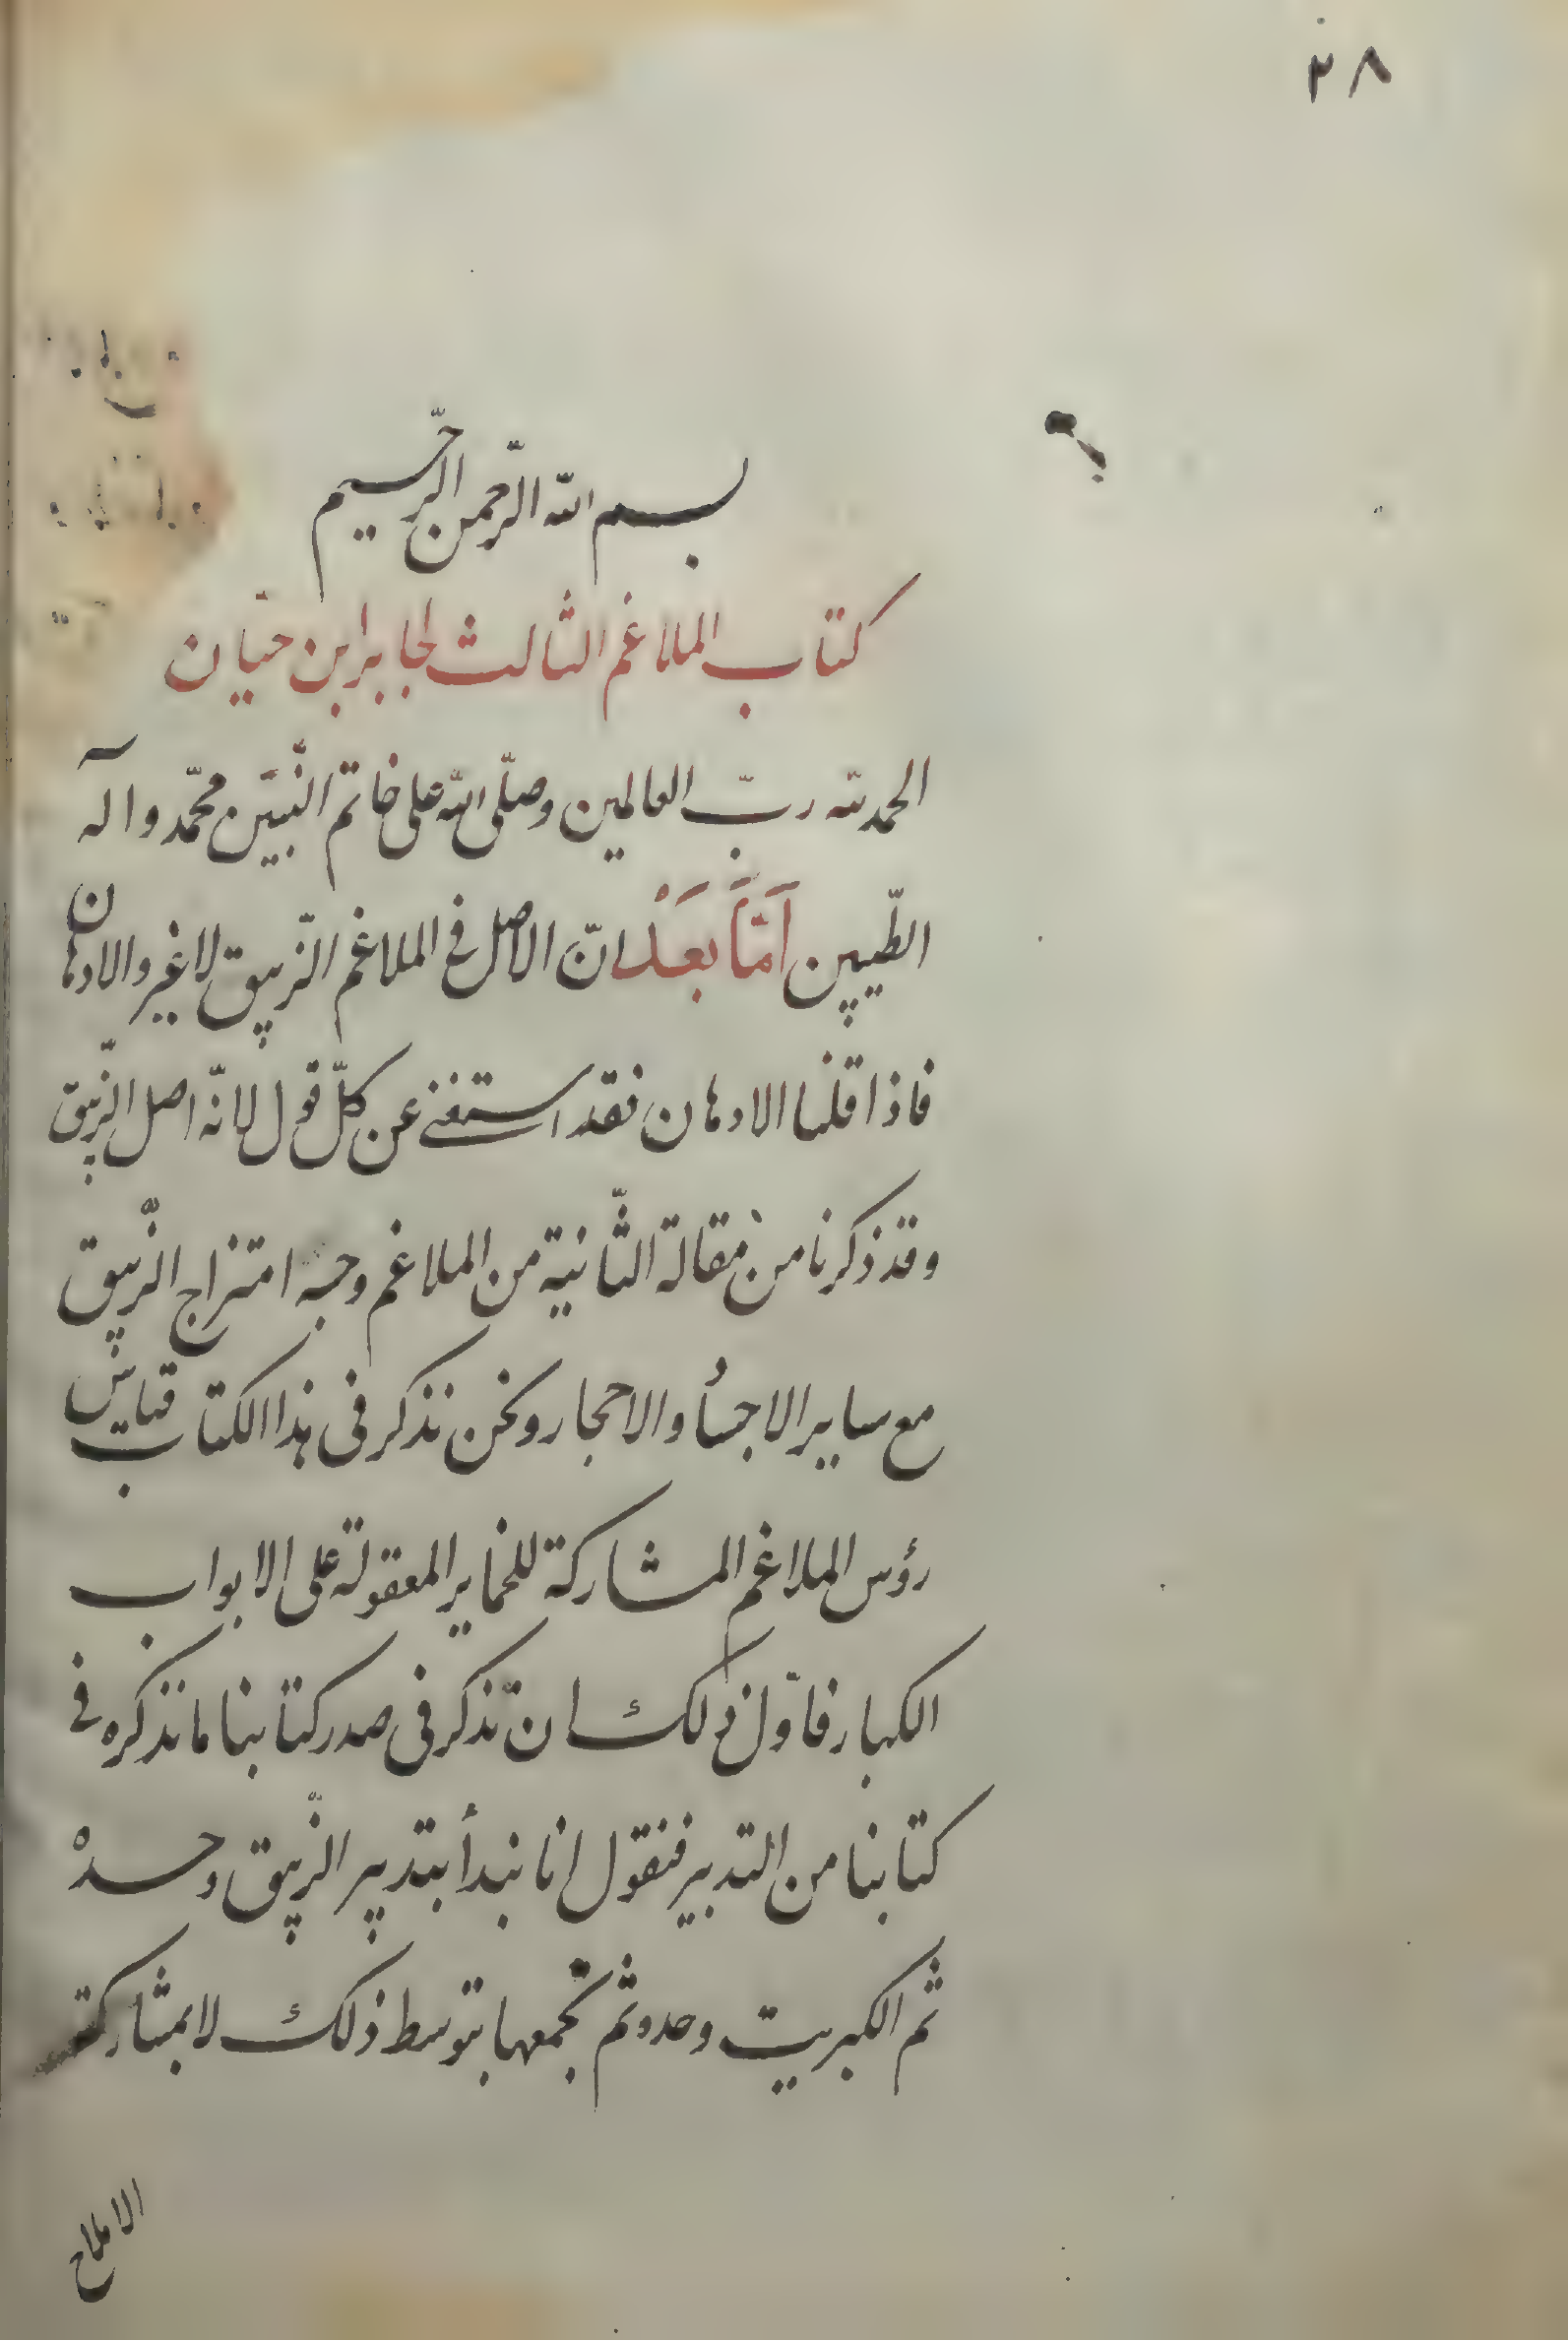 ٢٨
بسم الله الرّحمن الرّحيم
كتاب الملاغم الثالث لجابر ابن حيّان
الحمد لله ربّ العالمين وصلّى الله على خاتم النّبيّن محمّد وآله
الطّيبين اَمَّا بَعَدْ انّ الاصل فى الملاغم الزّيبق لا غير والادهان
فاذا قلنا الادهان فقد استغنى عن كلّ قول لانّه اصل الزّيبق
وقد ذكرنا من مقالة الثّانية من الملاغم وجه امتزاج الزّيبق
مع ساير الاجساُ والاحجار ونحن نذكر فى هذا الكتاب قياس
رؤس الملاغم المشاركة للخماير المعقولة على الابواب
الكبار فاوّل ذلك ان نذكر فى صدر كتابنا ما نذكره فى
كتابنا من التدبير فنقول انا نبدأ بتدبير الزّيبق وحده
ثم الكبريت وحده ثم نجمعها بتوسط ذلك لا بمشاركة
الاملاح